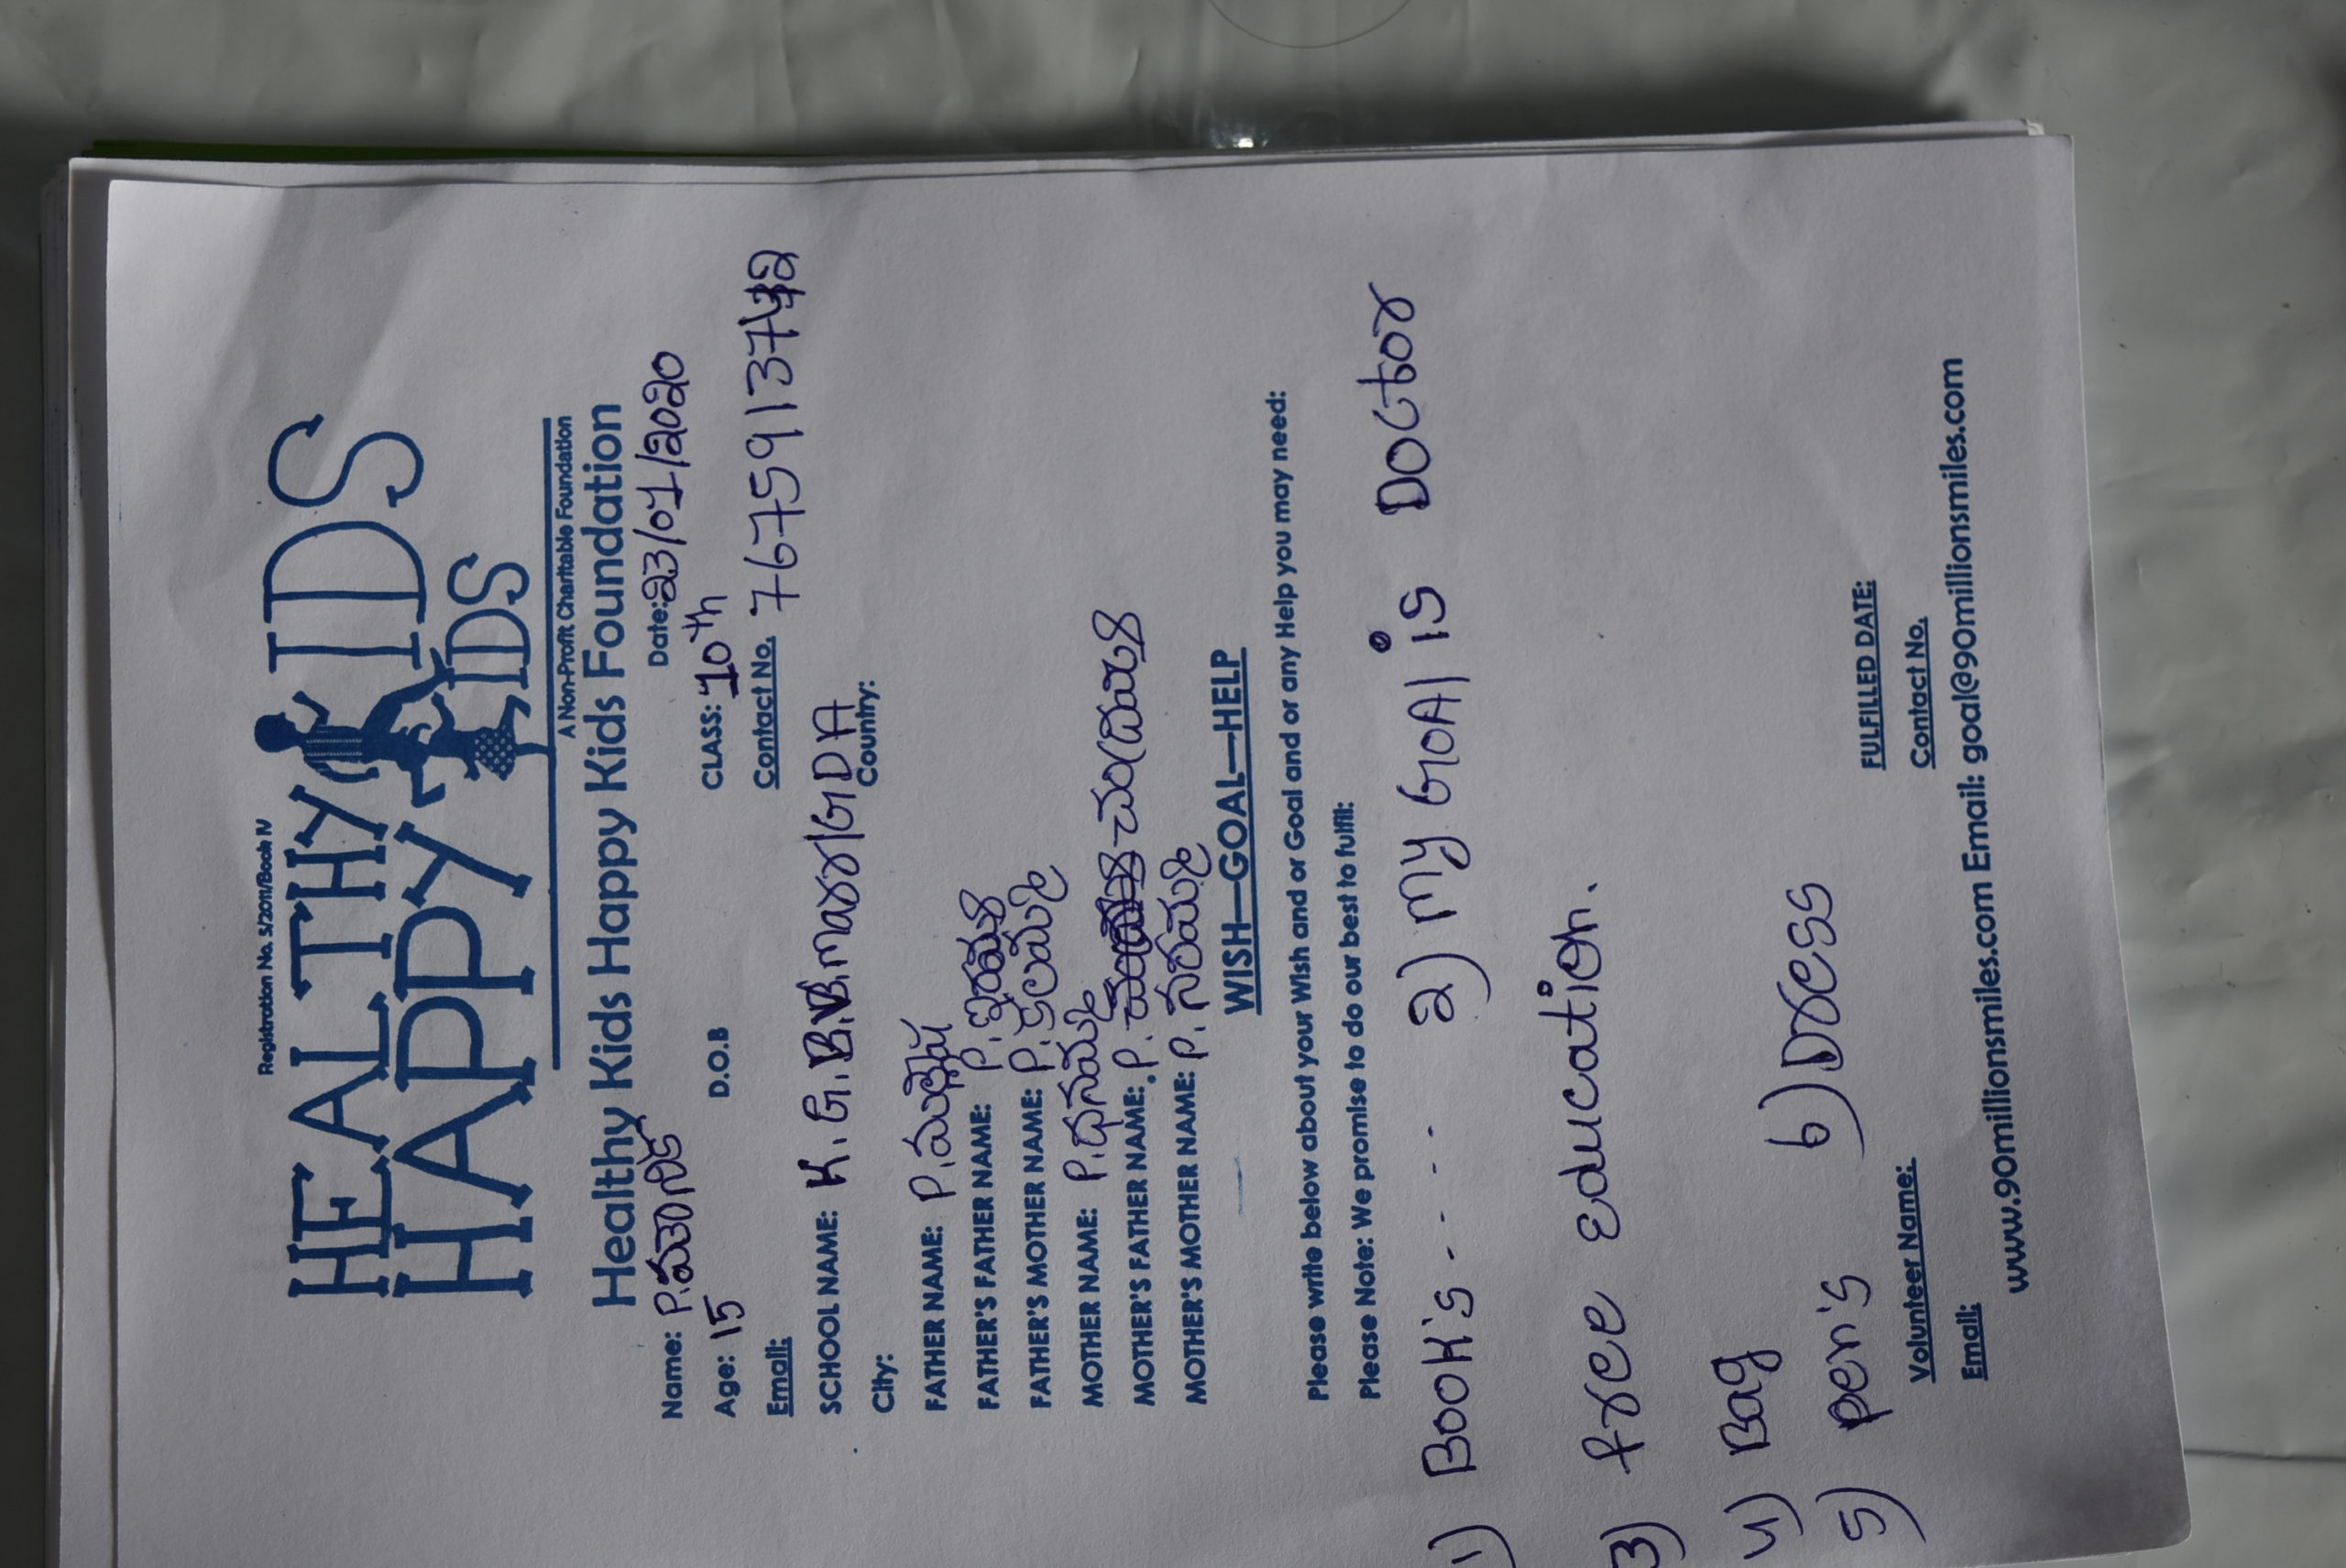 Registration No. S/2011/Book IV
HEALTHY KIDS
HAPPY KIDS
A Non-Profit Charitable Foundation
Healthy Kids Happy Kids Foundation
Name: P. Date: 23/01/2020
Age: 15 D.O.B CLASS: 10th
Email: Contact No. 76759137
SCHOOL NAME: K.G.B.V.marrIGDA
City: Country:
FATHER NAME: P.
FATHER'S FATHER NAME: P.
FATHER'S MOTHER NAME: P.
MOTHER NAME: P.
MOTHER'S FATHER NAME: P.
MOTHER'S MOTHER NAME: P.
WISH—GOAL—HELP
Please write below about your Wish and or Goal and or any Help you may need:
Please Note: We promise to do our best to fulfil:
1) Book's ..... 2) my GOAl is DOCtor
3) free Education.
4) Bag
5) pen's 6) Dress
Volunteer Name: FULFILLED DATE:
Email: Contact No.
www.90millionsmiles.com Email: goal@90millionsmiles.com